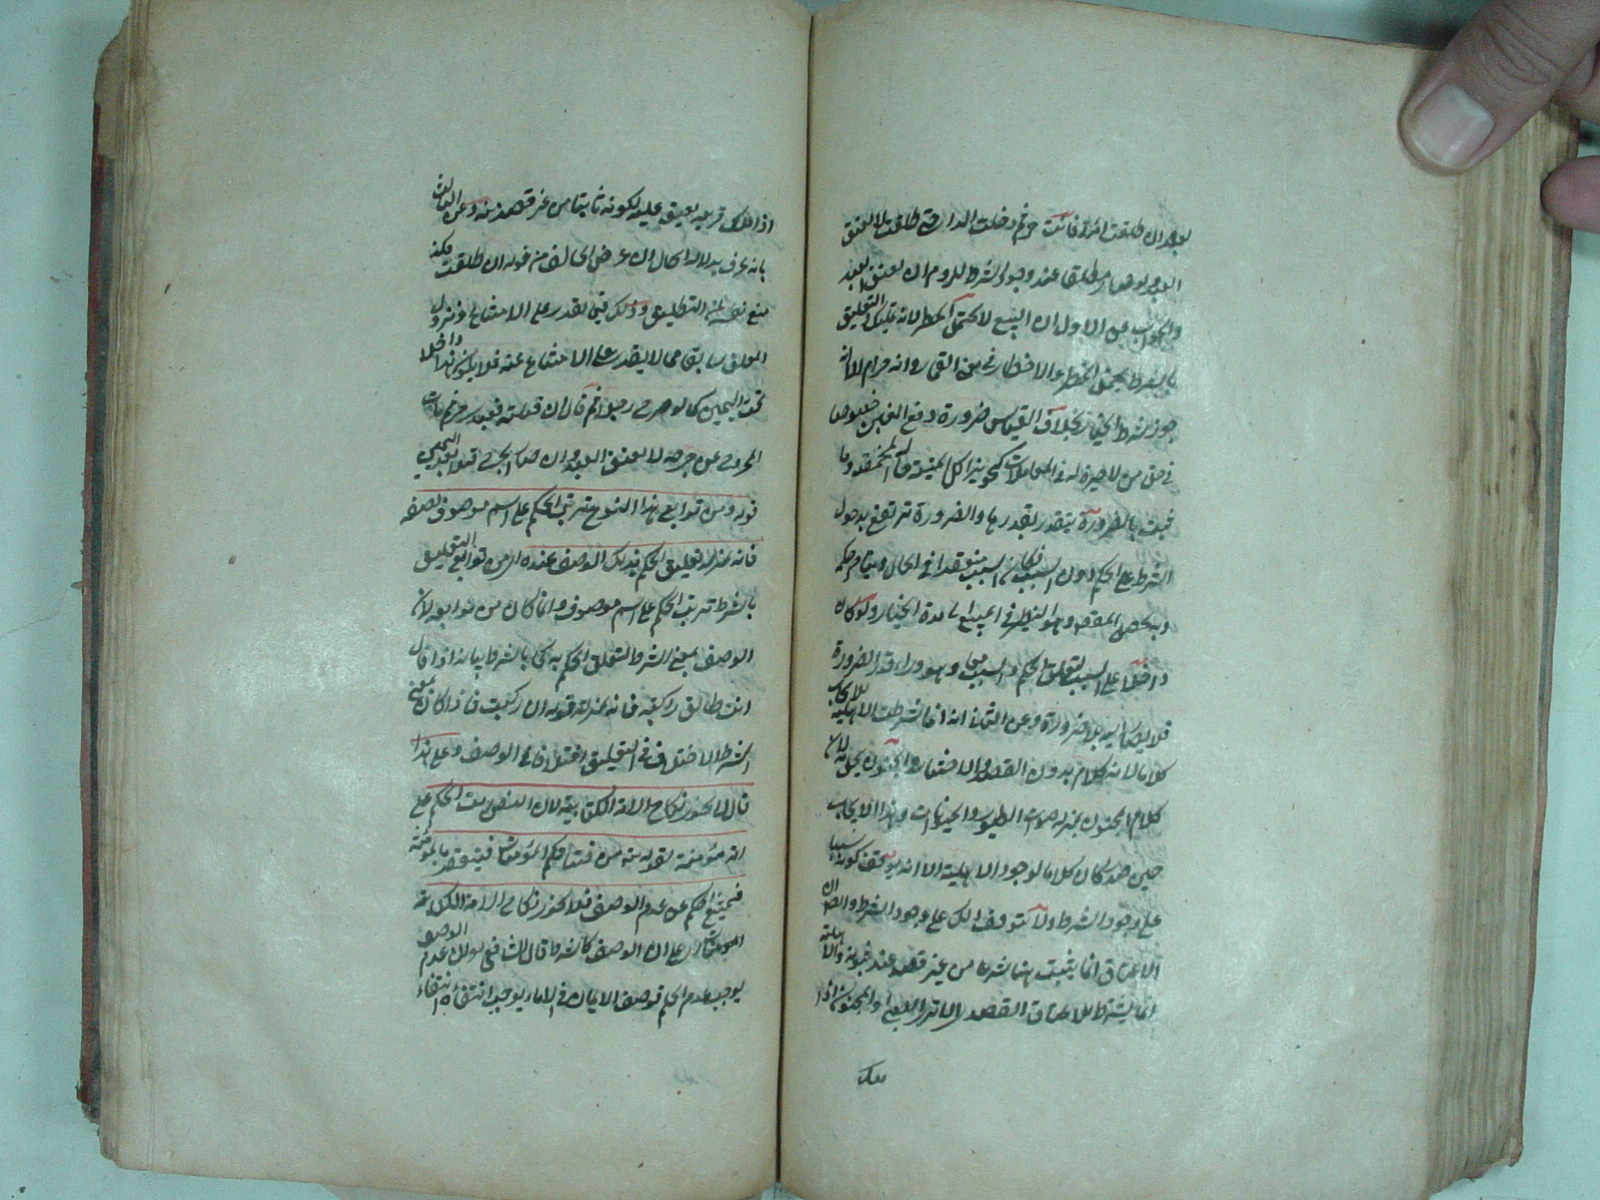 بعد ان طلقت امرأة فانت حر ثم دخلت الدار حتى طلقت بلا يعتق
العبد ولو صار مطلقا عند وجود الشرط للزوم ان يعتق العبد
والجواب عن الاول ان البيع لا يحتمل الخطر لانه تمليك والتعليق
بالشرط يحتمل الخطر والاخطار نوع من القمار وانه حرام الا انه
جوز شرط الخيار بخلاف القياس ضرورة دفع الغبن خصوصا
في حق من لا خبرة له في المعاملات كتجويز اكل الميتة حالة المخمصة وما
ثبت بالضرورة يتقدر بقدرها والضرورة ترتفع بدخول
الشرط على الحكم دون السبب فكان السبب منعقدا في الحال ويتأخر حكمه
ويحصل المقصود وهو النظر في المبيع الى مدة الخيار ولو كان
داخلا على السبب لتعلق الحكم والسبب معا وهو وراء قدر الضرورة
فلا يصار اليه بلا ضرورة وعن الثاني انه انما شرطت الاهلية للايجاب
كلاما لانه كلام بدون القصد والاختيار والجنون يخل به لان
كلام المجنون بمنزلة صوت الطيور والحيوانات وهذا الايجاب
حين صدر كان كلاما لوجود الاهلية الا انه يتوقف كونه سببا
على وجود الشرط ولا يتوقف ذلك على وجود الشرط والضمان
الاعتاق انما يثبت هنا شرعا من غير قصد عند ثبوته والاهلية
انما يشترط للاعتاق القصدي الا ترى ان الصبي او المجنون اذا
ملك
اذا ملك قريبه يعتق عليه لكونه ثابتا من غير قصد منه وعن الثالث
بانه عرف بدلالة الحال ان غرض الحالف من قوله ان طلقت فكذا
منع نفسه عن التطليق وذلك فيما يقدر على الامتناع ونزول
المعلق سابق مما لا يقدر على الامتناع عنه فلا يكون هذا داخلا
تحت اليمين كما لو جرح رجلا ثم قال ان قتلته فعبده حر ثم مات
المجروح من جرحه لا يعتق العبد وان صار الجرح قتلا بعد اليمين
قوله ومن توابع هذا النوع ترتب الحكم على اسم موصوف بصفة
فانه بمنزلة تعليق الحكم بذلك الوصف عنده اي من توابع التعليق
بالشرط ترتب الحكم على اسم موصوف وانما كان من توابعه لان
الوصف بمعنى الشرط لتعلق الحكم به كما بالشرط بيانه اذا قال
انت طالق راكبة فانه بمنزلة قوله ان ركبت فاذا كان بمعنى
الشرط الاختلاف في التعليق اختلافا في الوصف وعلى هذا
قال لا يجوز نكاح الامة الكتابية لان النص رتب الحكم على
امة مؤمنة لقوله تعالى من فتياتكم المؤمنات فيتقيد بالمؤمنة
فيمتنع الحكم عن عدم الوصف فلا يجوز نكاح الامة الكتابية
على ان الوصف كالشرط قال الشافعي لو كان عدم الوصف
يوجب عدم الحكم فوصف الايمان في الاماء يوجب انتفاءه انتفاء